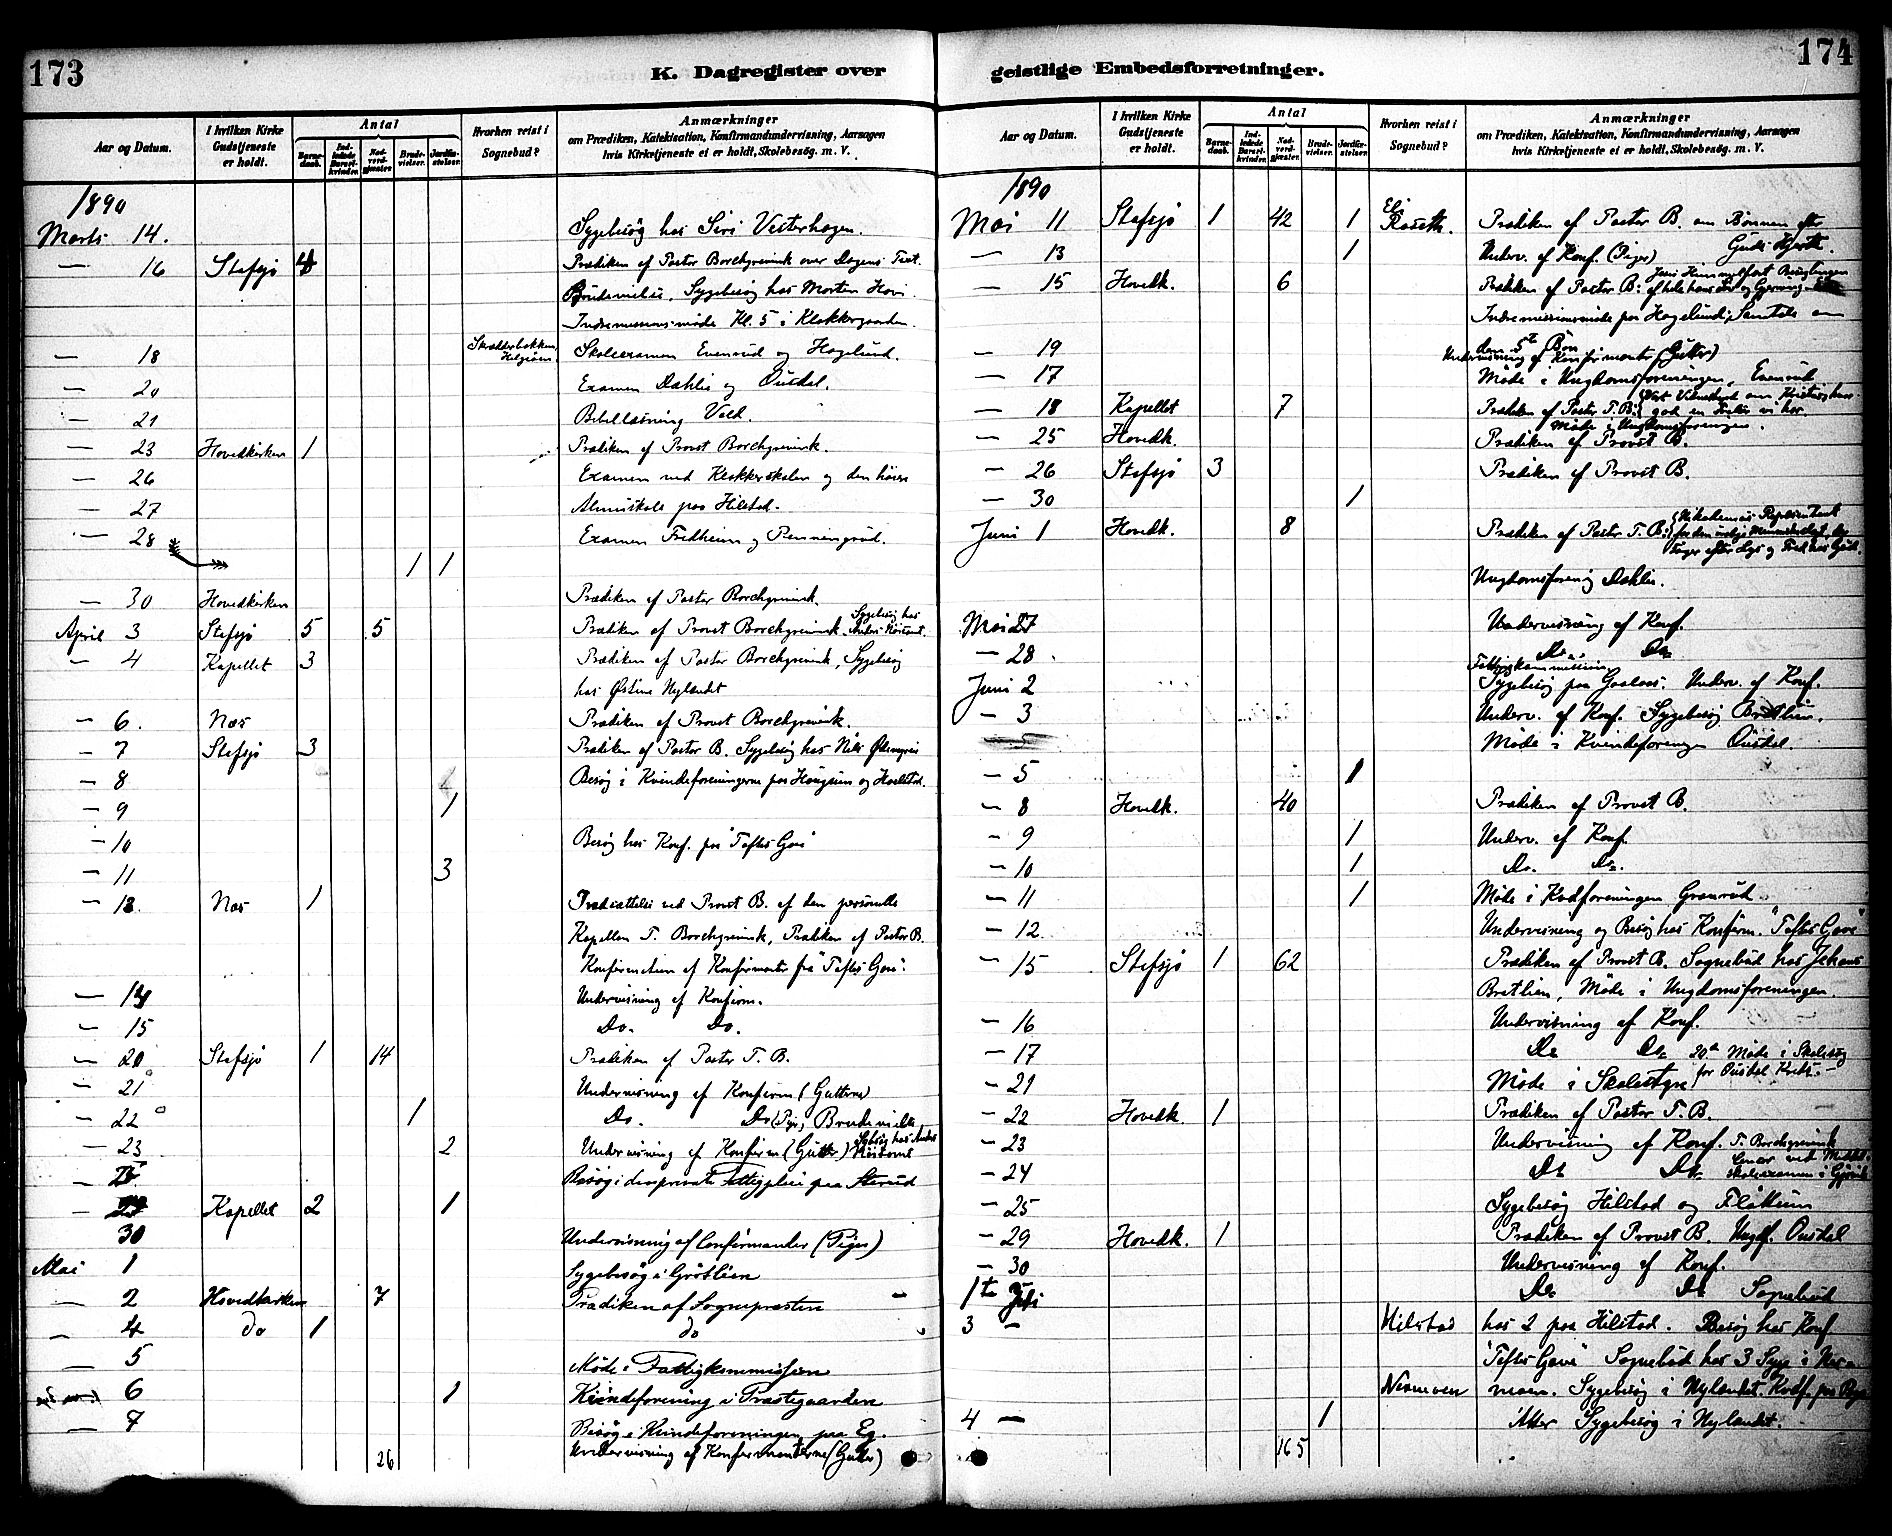 173
K. Dagregister over
Aar og Datum.
I hvilken Kirke Gudstjeneste er holdt.
Antal
Barnedaab.
Indledede Barselkvinder.
Nadverdgjæster.
Brudevielser.
Jordfæstelser.
Hvorhen reist i Sognebud?
Anmærkninger
om Prædiken, Katekisation, Konfirmandundervisning, Aarsagen
hvis Kirketjeneste ei er holdt, Skolebesög. m. V.
1890
Marts 14. Sygebesøg hos Siri Vesterhagen.
— 16 Stefsjø 4 Prædiken af Pastor Borchgrevink over Dagens Text.
Brudevielse, Sygebesøg hos Morten Hovi.
Indremissionsmøde Kl. 5 i Klokkergaarden.
— 18 Skræddebakken, Skoleexamen Evenrud og Hagelund.
— 20 Examen Dahlie og Ousdal.
— 21 Bibellæsning Vold.
— 23 Hovedkirken 1 Prædiken af Provst Borchgrevink.
— 26 Examen ved Klokkerskolen og den høiere
— 27 Almuskole paa Hilstad.
— 28 Examen Fredheim og Penningrud.
1 1
— 30 Hovedkirken Prædiken af Pastor Borchgrevink.
April 3 Stefsjø 5 5 Prædiken af Provst Borchgrevink. Sygebesøg hos
— 4 Kapellet 3 Prædiken af Pastor Borchgrevink, Sygebesøg
hos Østine Nylandet
— 6. Næs Prædiken af Provst Borchgrevink.
— 7 Stefsjø 3 Prædiken af Pastor B. Sygebesøg hos Nils
— 8 Besøg i Kvindeforeningerne paa Haugsum og
— 9 1
— 10 Besøg hos Konf. paa "Toftes Gave"
— 11 3
— 13. Næs 1 Indsættelse ved Provst B. af den personelle
Kapellan T. Borchgrevink, Prædiken af Pastor B.
Konfirmation af Konfirmanter fra "Toftes Gave".
— 14 Undervisning af Konfirm.
— 15 Do. Do.
— 20 Stefsjø 1 14 Prædiken af Pastor T. B.
— 21 Undervisning af Konfirm (Gutterne)
— 22 1 Do. Do (Pige) Brudevielse
— 23 2 Undervisning af Konfirm (Gutter) Sygbesøg hos Anders
Besøg i den private Fattigpleie paa Sterud
— Kapellet 2 1
30 Undervisning af Confirmander (Piger)
Mai 1 Sygebesøg i Grötlien
— 2 Hovedkirken 7 Prædiken af Sognepræsten
— 4 do 1 do
— 5 Møde i Fattigkommissionen
— 6 1 Kvindeforening i Præstegaarden
— 7 Besøg i Kvindeforeningen paa Eg.
Undervisning af Konfirmanterne (Gutter)
26
174
geistlige Embedsforretninger.
Aar og Datum.
I hvilken Kirke Gudstjeneste er holdt.
Antal
Barnedaab.
Indledede Barselkvinder.
Nadverdgjæster.
Brudevielser.
Jordfæstelser.
Hvorhen reist i Sognebud?
Anmærkninger
om Prædiken, Katekisation, Konfirmandundervisning, Aarsagen
hvis Kirketjeneste ei er holdt, Skolebesög. m. V.
1890
Mai 11 Stefsjø 1 42 1 Prædiken af Pastor B. om Bønnen efter
Guds Hjerte.
— 13 1 Underv. af Konf. (Piger)
— 15 Hovedk. 6 Prædiken af Pastor B:
Indremissionsmøde paa Hagelund; Samtale om
den 5te Bøn
— 19 Undervisning af Konfirmanter (Gutter)
— 17 Møde i Ungdomsforeningen, Evenrud
— 18 Kapellet 7 Prædiken af Pastor T. B:
Møde i Ungdomsforeningen.
— 25 Hovedk. Prædiken af Provst B.
— 26 Stefsjø 3 Prædiken af Provst B.
— 30 1
Juni 1 Hovedk. 8 Prædiken af Pastor T. B:
søger efter Lys og Fred hos Gud.
Ungdomsforening Dahlie.
Mai 27 Undervisning af Konf.
— 28. Do. Do
Fattigkommission
Juni 2 Sygebesøg paa Underv. af Konf.
— 3 Underv. af Konf. Sygebesøg Brætlien.
Møde i Kvindeforeningen Ousdal.
— 5 1
— 8 Hovedk. 40 Prædiken af Provst B.
— 9 1 Underv. af Konf.
— 10 1 Do. Do.
— 11 1 Møde i Kvdforeningen Granrud.
— 12 Undervisning og Besøg hos Konfirm. "Toftes Gave"
— 15 Stefsjø 1 62 Prædiken af Provst B. Sognebud hos Johans
Brætlien, Møde i Ungdomsforeningen.
— 16 Undervisning af Konf.
— 17 Do Do 20de Møde i Skolebesøg
for Ousdal Kreds.
— 21 Møde i Skolestyre
— 22 Hovedk. 1 Prædiken af Pastor T. B.
— 23 Undervisning af Konf. T. Borchgrevink
— 24 Do Do Censor ved Middelskoleexamen i Gjøvik
— 25 Sygebesøg Hilstad og Fløttum
— 29 Hovedk. 1 Prædiken af Provst B. Ungf. Ousdal
— 30 Undervisning af Konf.
1te Juli Do Do Sognebud
3 — Hilstad hos 2 paa Hilstad. Besøg hos Konf
"Toftes Gave" Sognebud hos 3 Syge i
moen. Sygebesøg i Nylandet. Kvdf. paa
4 — 1 Atter Sygebesøg i Nylandet.
165